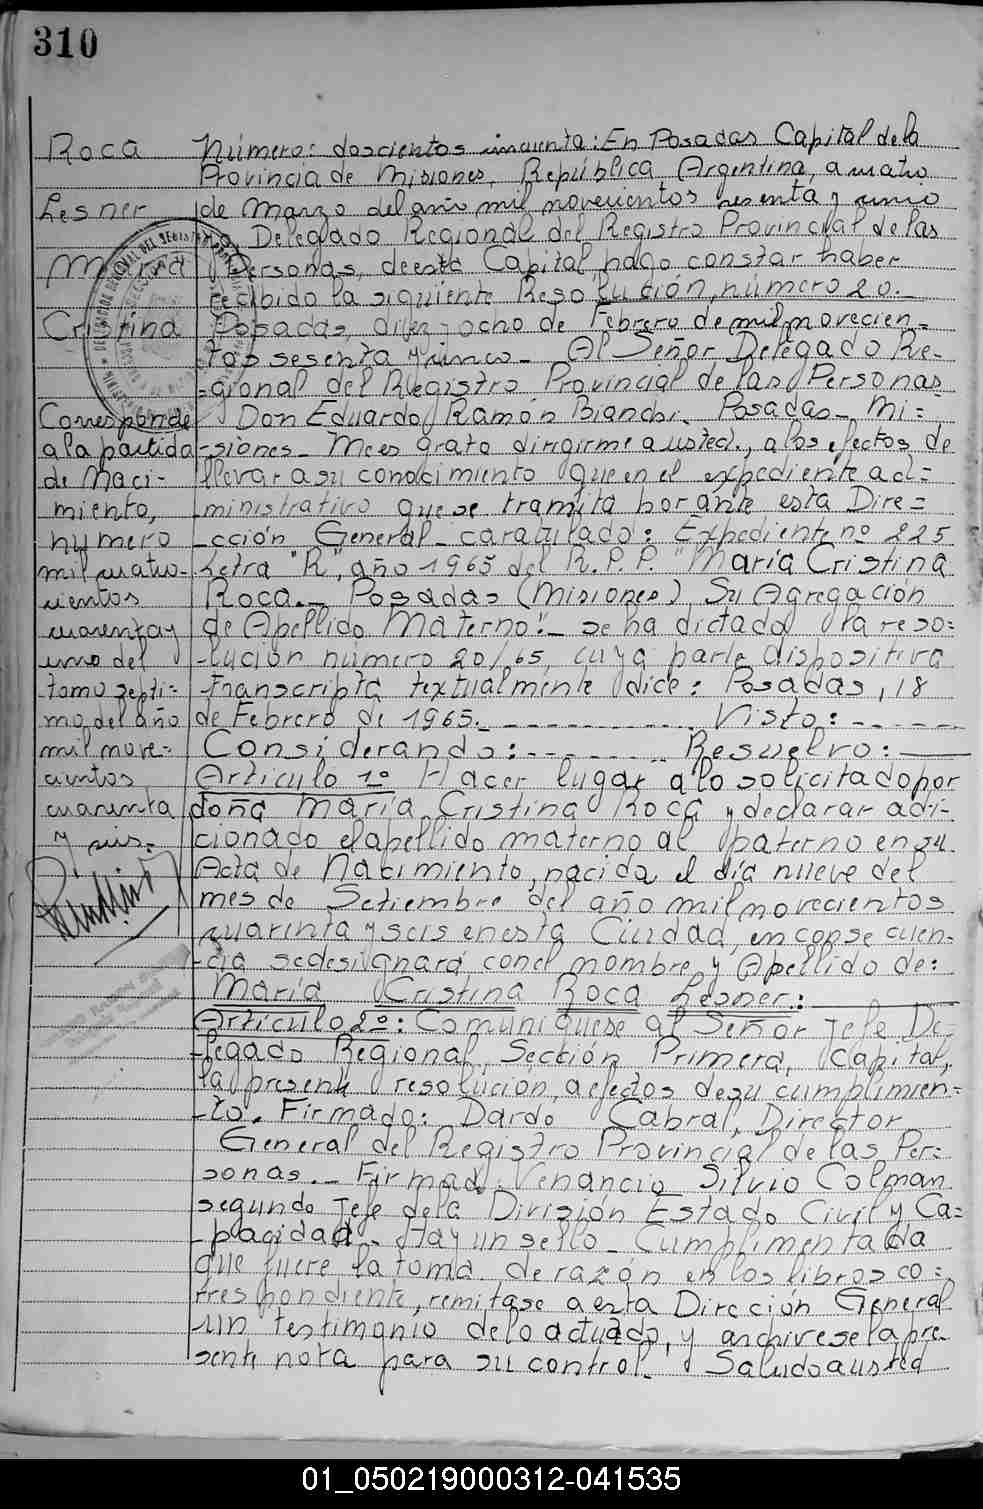 310
Roca
Lesner
María
Cristina
Corresponde
a la partida
de Naci-
miento,
número
mil cuatro-
cientos
cuarenta y
uno del
tomo septi=
mo del año
mil nove=
cientos
cuarenta
y seis.
Número: doscientos cincuenta: En Posadas Capital de la
Provincia de Misiones, República Argentina, a cuatro
de Marzo del año mil novecientos sesenta y cinco
Delegado Regional del Registro Provincial de las
Personas, de esta Capital hago constar haber
recibido la siguiente Resolución, número 20.-
Posadas, diez y ocho de Febrero de mil novecien=
tos sesenta y cinco- Al Señor Delegado Re-
-gional del Registro Provincial de las Personas
Don Eduardo Ramón Bianchi. Posadas- Mi=
-siones- Me es grato dirigirme a usted., a los efectos de
llevar a su conocimiento que en el expediente ad=
-ministrativo que se tramita por ante esta Dire=
-cción General- caratulado: Expediente nº 225
Letra "R", año 1965 del R.P.P. "María Cristina
Roca.- Posadas (Misiones) Su Agregación
de Apellido Materno"- se ha dictado la reso=
-lución número 20/65, cuya parte dispositiva
transcripta textualmente dice: Posadas, 18
de Febrero de 1965. - - - - - - Visto: - - - - -
Considerando: - - - - - Resuelvo: ———
Artículo 1º Hacer lugar a lo solicitado por
doña María Cristina Roca y declarar adi-
cionado el apellido materno al paterno en su
Acta de Nacimiento, nacida el día nueve del
mes de Setiembre del año mil novecientos
cuarenta y seis en esta Ciudad, en consecuen-
-cia se designará con el nombre y Apellido de:
María Cristina Roca Lesner: ———
Artículo 2º: Comuníquese al Señor Jefe De-
-legado Regional, Sección Primera, Capital,
la presente resolución, a efectos de su cumplimien-
-to. Firmado: Dardo Cabral, Director
General del Registro Provincial de las Per=
sonas.- Firmado: Venancio Silvio Colman
segundo Jefe de la División Estado Civil y Ca=
-pacidad- Hay un sello- Cumplimentada
que fuere la toma de razón en los libros co=
rrespondiente, remítase a esta Dirección General
un testimonio de lo actuado, y archívese la pre-
sente nota para su control. Saludo a usted
01_050219000312-041535